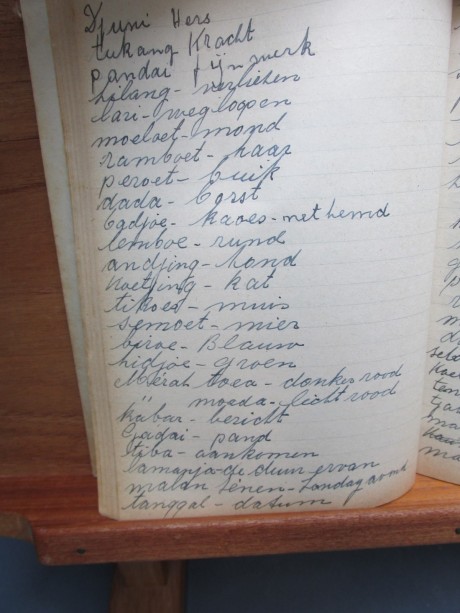 Djuni Hers
tukang Kracht
pandai fijn werk
hilang - verliezen
lari - wegloopen
moeloet - mond
ramboet - haar
peroet - buik
dada - borst
badjoe - kaoes - net hemd
lemboe - rund
andjing - hond
Koetjing - kat
tikoes - muis
semoet - mier
biroe - Blauw
hidjoe - groen
Merah toea - donker rood
" moeda - licht rood
kabar - bericht
Gadai - pand
tiba - aankomen
lamanja - de duur ervan
malan Senen - Zondag avond
tanggal - datum